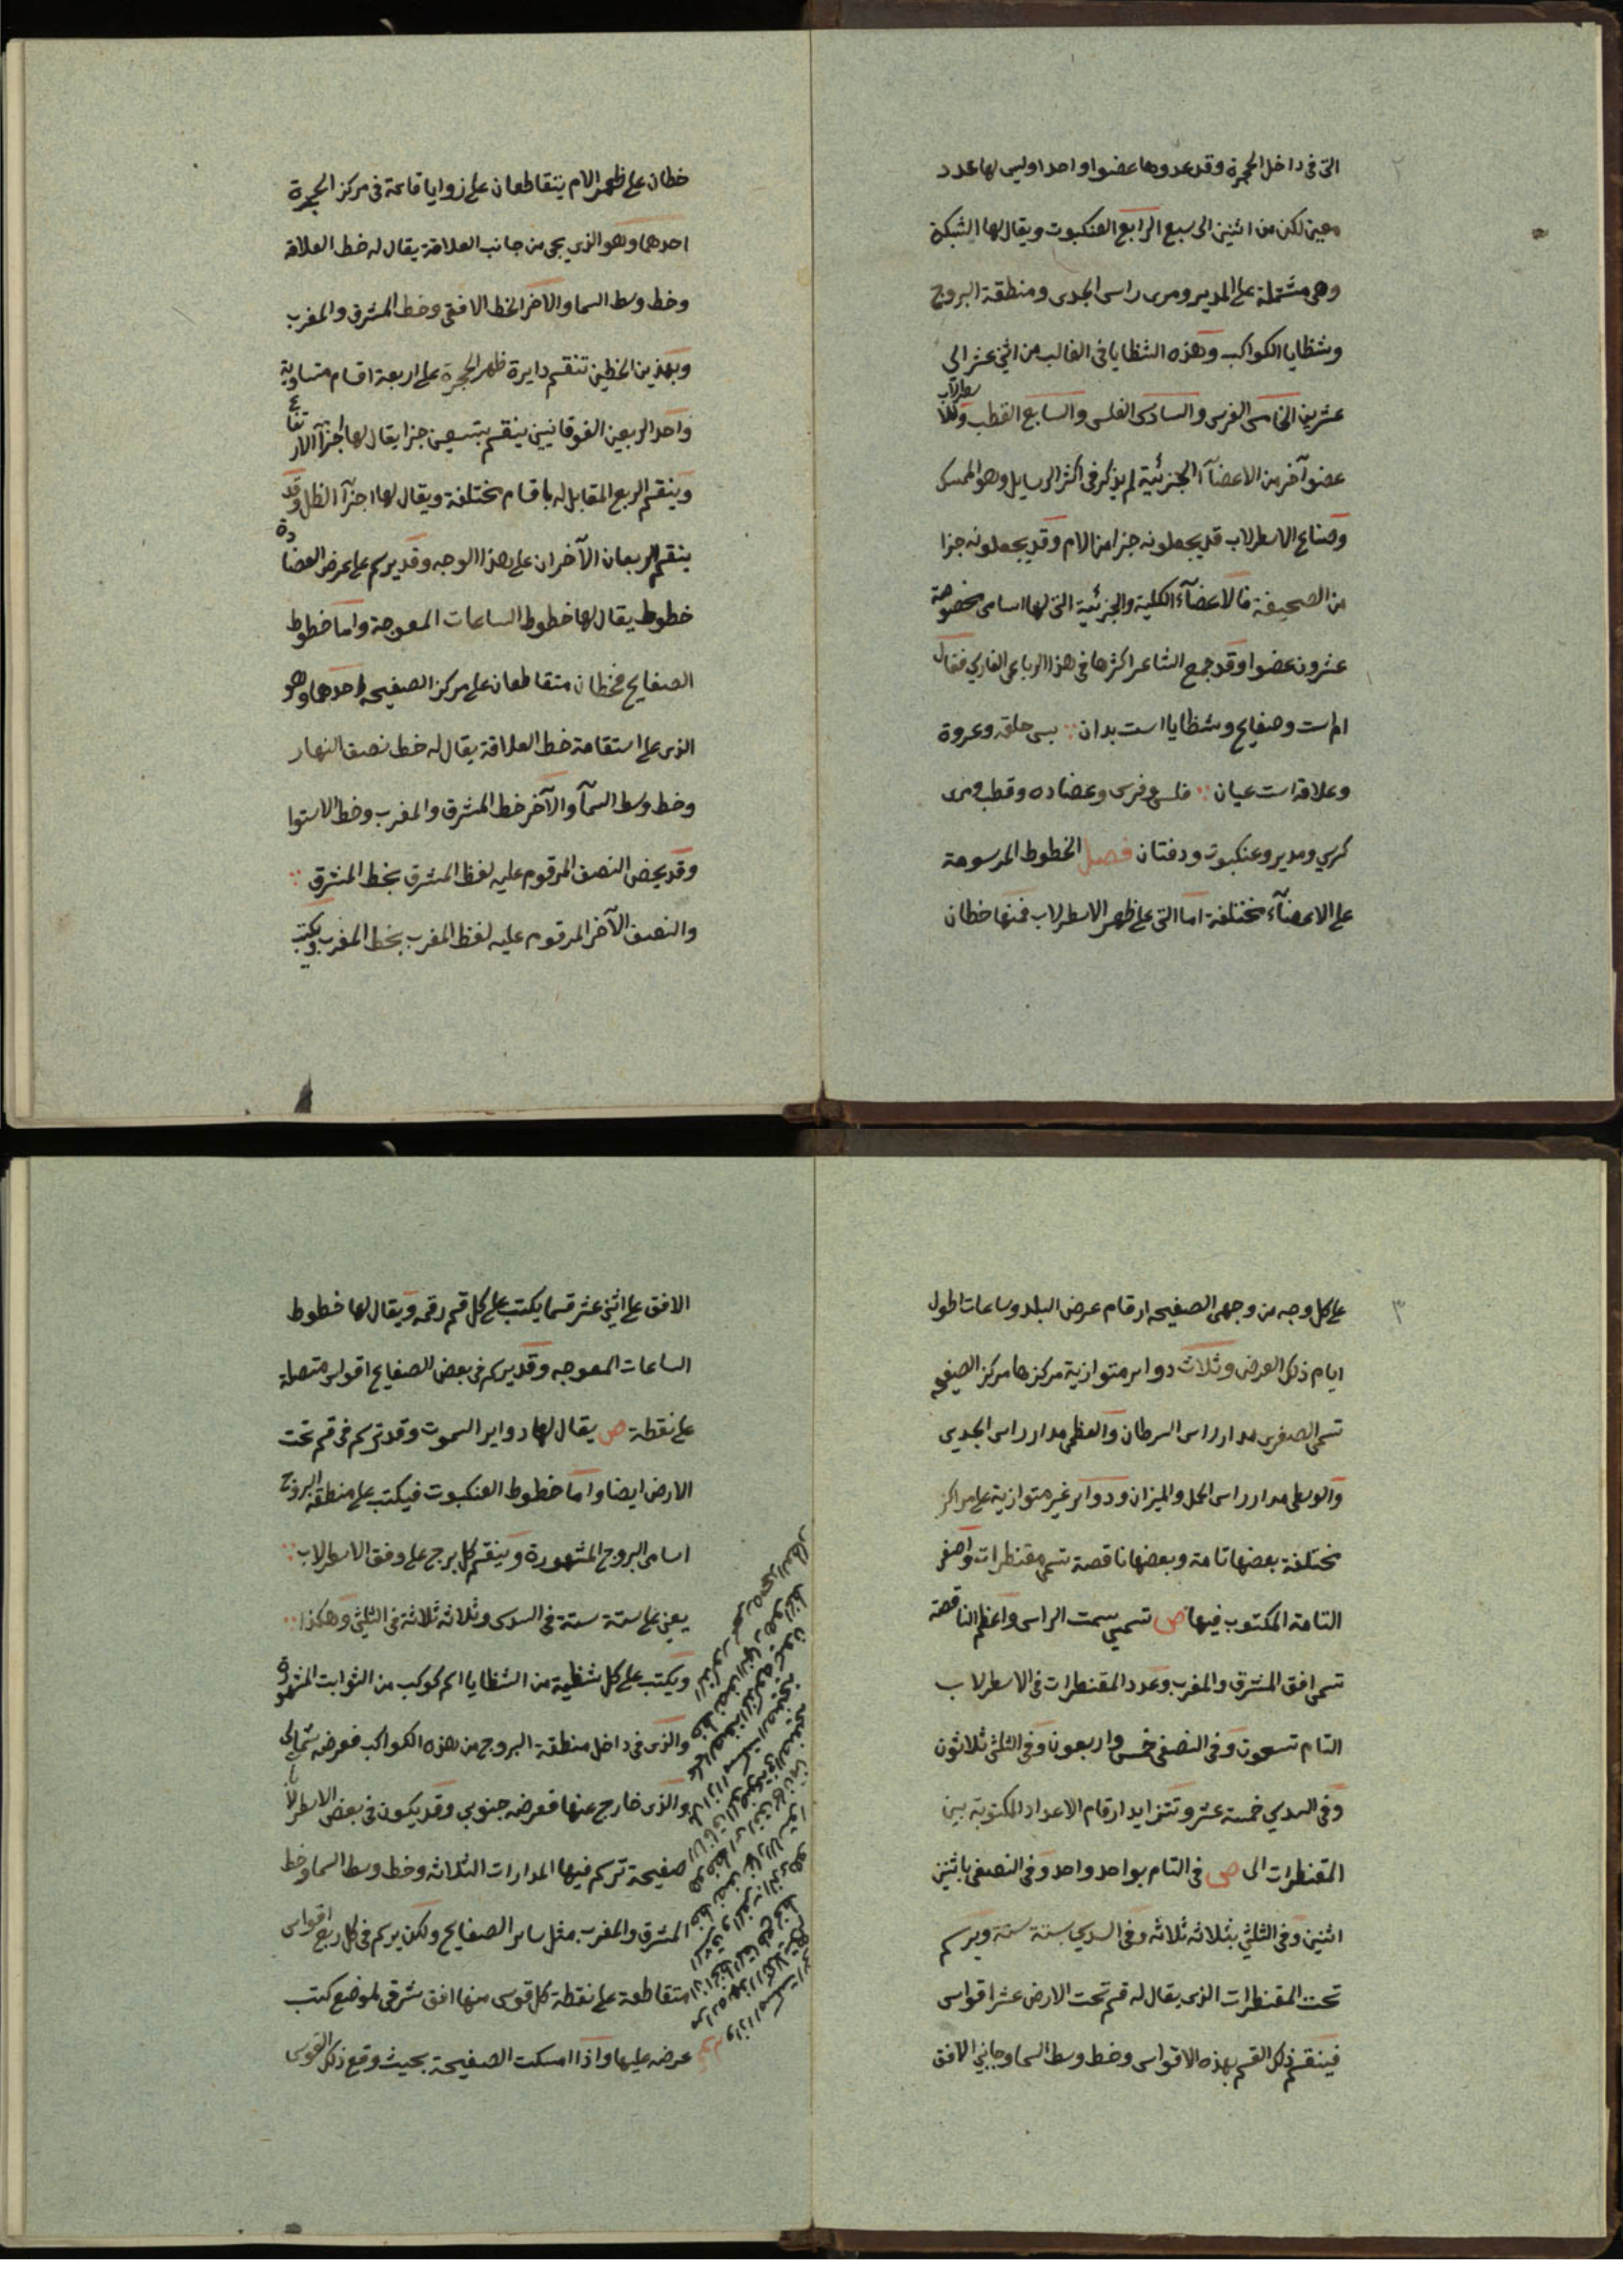 ٢
التى فى داخل الحجرة وقد عدوها عضوا واحدا وليس لها عدد
معين لكن من اثنين الى سبع الرابع العنكبوت ويقال لها الشبكة
وهى مشتملة على المدير ومرى راس الجدى ومنطقة البروج
وشظايا الكواكب وهذه الشظايا فى الغالب من اثنى عشر الى
عشرين الخامس الفرس والسادس الفلس والسابع القطب وللاسطرلاب
عضو آخر من الاعضآء الجزئية لم يذكر فى اكثر الرسايل وهو الممسك
وصناع الاسطرلاب قد يجعلونه جزا من الام وقد يجعلونه جزا
من الصحيفة فالاعضآء الكلية والجزئية التى لها اسامى مخصوصة
عشرون عضوا وقد جمع الشاعر اكثرها فى هذا الرباعى الفارسي فقال
ام است وصفايح وشظايا است بدان ∴ بس حلقه وعروة
وعلاقه است عيان ∴ فلس وفرس وعضاده وقطب ومرى
كرسي ومدير وعنكبوت ودفتان فصل الخطوط المرسومة
على الاعضآء مختلفة اما التى على ظهر الاسطرلاب فمنها خطان
خطان على ظهر الام يتقاطعان على زوايا قائمة فى مركز الحجرة
احدهما وهو الذى يجى من جانب العلاقة يقال له خط العلاقة
وخط وسط السما والاخر الخط الافقى وخط المشرق والمغرب
وبهذين الخطين تنقسم دايرة ظهر الحجرة على اربعة اقسام متساوية
واحد الربعين الفوقانيين ينقسم بتسعين جزا يقال لها اجزآ الارتفاع
وينقسم الربع المقابل له باقسام مختلفة ويقال لها اجزآ الظل وقد
ينقسم الربعان الآخران على هذا الوجه وقد يرسم على عرض العضادة
خطوط يقال لها خطوط الساعات المعوجة واما خطوط
الصفايح فخطان متقاطعان على مركز الصفيحه احدهما وهو
الذى على استقامة خط العلاقة يقال له خط نصف النهار
وخط وسط السمآ والآخر خط المشرق والمغرب وخط الاستوا
وقد يخص النصف المرقوم عليه لفظ المشرق بخط المشرق ∴
والنصف الآخر المرقوم عليه لفظ المغرب بخط المغرب ويكتب
٣
على كل وجه من وجهى الصفيحه ارقام عرض البلد وساعات اطول
ايام ذلك العرض وثلاث دواير متوازية مركزها مركز الصفيحه
تسمى الصغرى مدار راس السرطان والعظمى مدار راس الجدي
والوسطى مدار راس الحمل والميزان ودواير غير متوازية على مراكز
مختلفة بعضها تامة وبعضها ناقصة تسمى مقنطرات واصغر
التامة المكتوب فيها ص تسمى سمت الراس واعظم الناقصة
تسمى افق المشرق والمغرب وعدد المقنطرات فى الاسطرلاب
التام تسعون وفى النصفى خمس واربعون وفى الثلثى ثلاثون
وفى السدسي خمسة عشر وتتزايد ارقام الاعداد المكتوبة بين
المقنطرات الى ص فى التام بواحد واحد وفى النصفى باثنين
اثنين وفى الثلثي بثلاثه ثلاثه وفى السدسي بستة ستة ويرسم
تحت المقنطرات الذى يقال له قسم تحت الارض عشر اقواس
فينقسم ذلك القسم بهذه الاقواس وخط وسط السما وجانبي الافق
الافق على اثنى عشر قسما يكتب على كل قسم رقمه ويقال لها خطوط
الساعات المعوجه وقد يرسم فى بعض الصفايح اقواس متصلة
على نقطة ص يقال لها دواير السموت وقد ترسم فى قسم تحت
الارض ايضا واما خطوط العنكبوت فيكتب على منطقة البروج
اسامى البروج المشهورة وينقسم كل برج على وفق الاسطرلاب ∴
يعنى على ستة ستة فى السدسى وثلاثه ثلاثة فى الثلثى وهكذا ∴
ويكتب على كل شظية من الشظايا اسم كوكب من الثوابت المشهورة
والذى فى داخل منطقة البروج من هذه الكواكب فعرضه شمالى
والذى خارج عنها فعرضه جنوبي وقد يكون فى بعض الاسطرلاب
صفيحة ترسم فيها المدارات الثلاثه وخط وسط السما وخط
المشرق والمغرب مثل ساير الصفايح ولكن يرسم فى كل ربع اقواس
متقاطعة على نقطة كل قوس منها افق شرقى لموضع كتب
عرضه عليها واذا امسكت الصفيحة بحيث وقع ذلك القوس